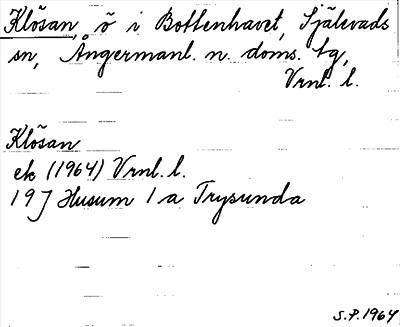 Klösan, ö i Bottenhavet, Själevads
sn, Ångermanl. n. doms. tg,
Vrnl. l.
Klösan
ek (1964) Vrnl. l.
19 J Husum 1 a Trysunda
S.P. 1964